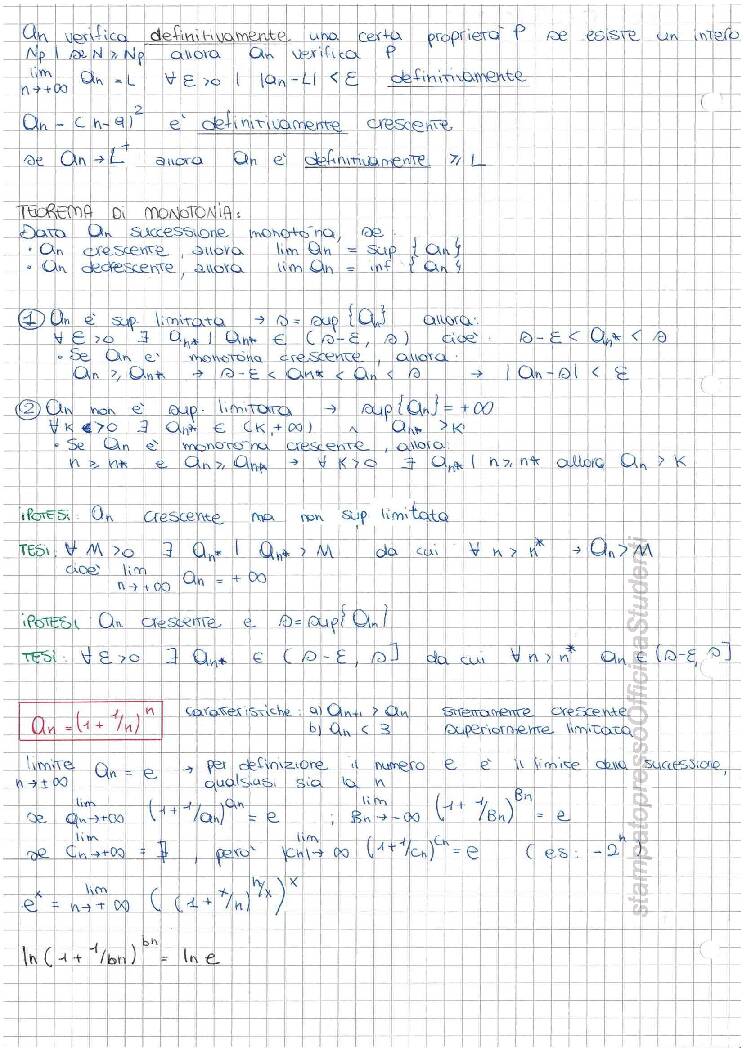 an verifica definitivamente una certa proprietà P se esiste un intero
Np | se N ≥ Np allora an verifica P
lim n→+∞ an = L ∀ε>0 | |an-L| < ε definitivamente
an = (n-9)² è definitivamente crescente
se an → L⁺ allora an è definitivamente ≥ L
TEOREMA DI MONOTONIA:
Data an successione monotòna, se:
• an crescente, allora lim an = sup {an}
• an decrescente, allora lim an = inf {an}
① an è sup. limitata → s = sup{an} allora:
∀ε>0 ∃ an* | an* ∈ (s-ε, s) cioè s-ε < an* < s
• Se an è monotòna crescente, allora:
an ≥ an* → s-ε < an* < an < s → |an-s| < ε
② an non è sup. limitata → sup{an} = +∞
∀K>0 ∃ an* ∈ (K,+∞) ∧ an* > K
• Se an è monotòna crescente, allora:
n ≥ n* e an ≥ an* → ∀K>0 ∃ an* | n ≥ n* allora an > K
IPOTESI: an crescente ma non sup limitata
TESI: ∀M>0 ∃ an* | an* > M da cui ∀n>n* → an>M
cioè lim n→+∞ an = +∞
IPOTESI: an crescente e s = sup{an}
TESI: ∀ε>0 ∃ an* ∈ (s-ε, s] da cui ∀n>n* an ∈ (s-ε, s]
an = (1+1/n)ⁿ caratteristiche: a) an+1 > an strettamente crescente
b) an < 3 superiormente limitata
limite n→+∞ an = e → per definizione il numero e è il limite della successione,
qualsiasi sia la n
se lim an→+∞ (1+1/an)^an = e ; lim Bn→-∞ (1+1/Bn)^Bn = e
se lim Cn→+∞ = ∄, però lim |Cn|→∞ (1+1/Cn)^Cn = e (es: -2ⁿ)
eˣ = lim n→+∞ ((1+x/n)^n/x)^x
ln(1+1/bn)^bn = ln e
stampatopressoOfficinaStudenti